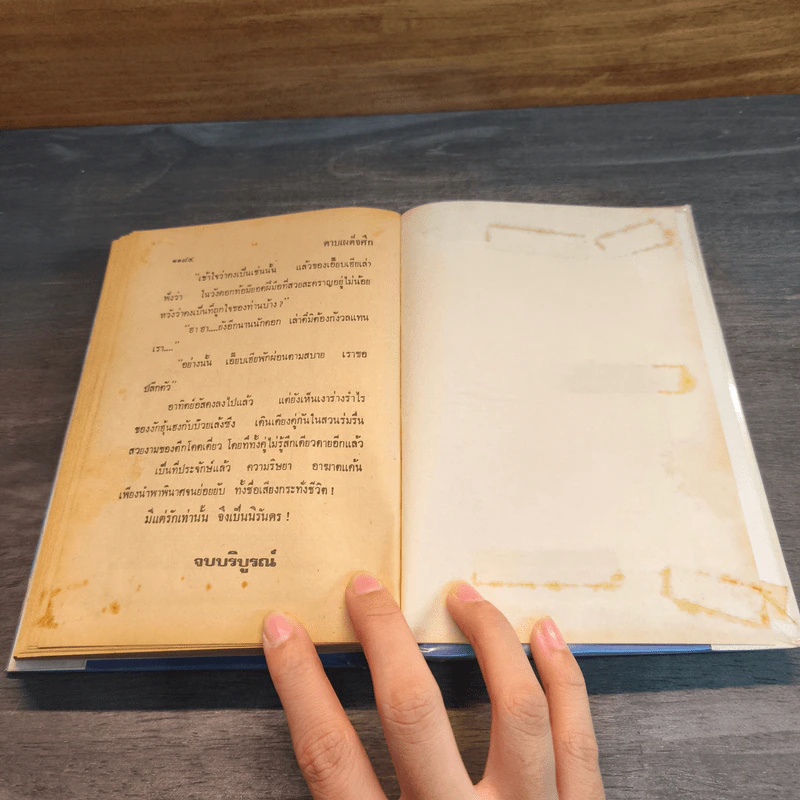 ๑๑๗๙ ดาบเผด็จศึก
"เข้าใจว่าคงเป็นเช่นนั้น แล้วของเอี๊ยบเฮียเล่า
ฟังว่า ในวังดอกท้อมียอดฝีมือที่สวยสะคราญอยู่ไม่น้อย
หวังว่าคงเป็นที่ถูกใจของท่านบ้าง ?"
"ฮา ฮา....ยังอีกนานนักดอก เล่าตี๋มิต้องกังวลแทน
เรา...."
"อย่างนั้น เอี๊ยบเฮียพักผ่อนตามสบาย เราขอ
ปลีกตัว"
อาทิตย์อัสดงลงไปแล้ว แต่ยังเห็นเงาร่างรำไร
ของงักฮุ้นฮงกับบ๊วยเล้งซึง เดินเคียงคู่กันในสวนร่มรื่น
สวยงามของตึกโดดเดี่ยว โดยที่ทั้งคู่ไม่รู้สึกเดียวดายอีกแล้ว
เป็นที่ประจักษ์แล้ว ความริษยา อาฆาตแค้น
เพียงนำพาพินาศจนย่อยยับ ทั้งชื่อเสียงกระทั่งชีวิต !
มีแต่รักเท่านั้น จึงเป็นนิรันดร !
จบบริบูรณ์